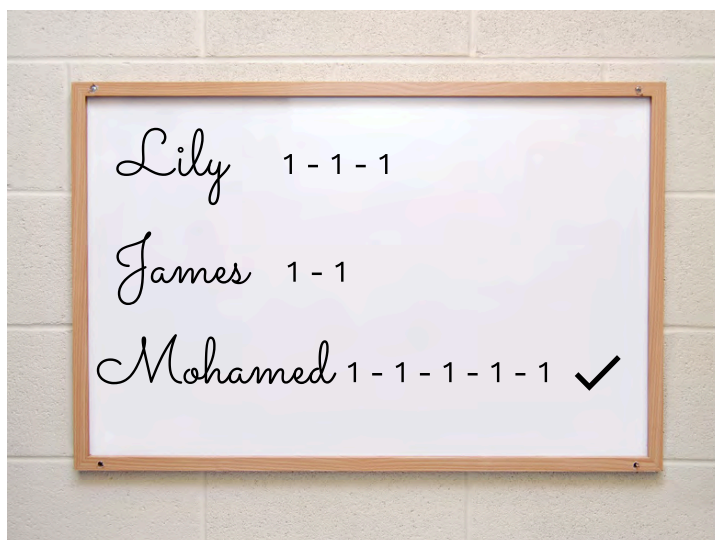 Lily 1 - 1 - 1
James 1 - 1
Mohamed 1 - 1 - 1 - 1 - 1 ✓